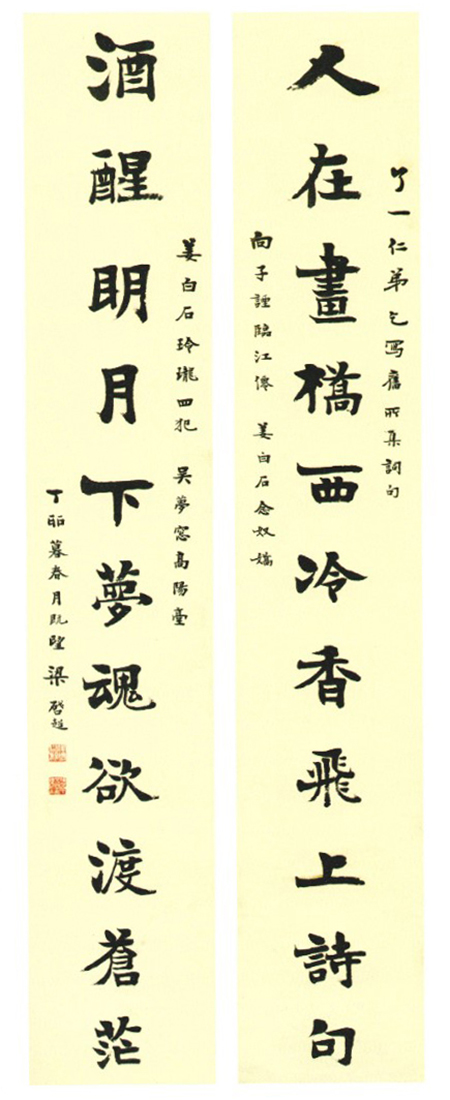 了一仁弟乞寫舊所集詞句
人在畫橋西冷香飛上詩句
向子諲臨江僊 姜白石念奴嬌
姜白石玲瓏四犯 吳夢窗高陽臺
酒醒明月下夢魂欲渡蒼茫
丁卯暮春月既望 梁啓超